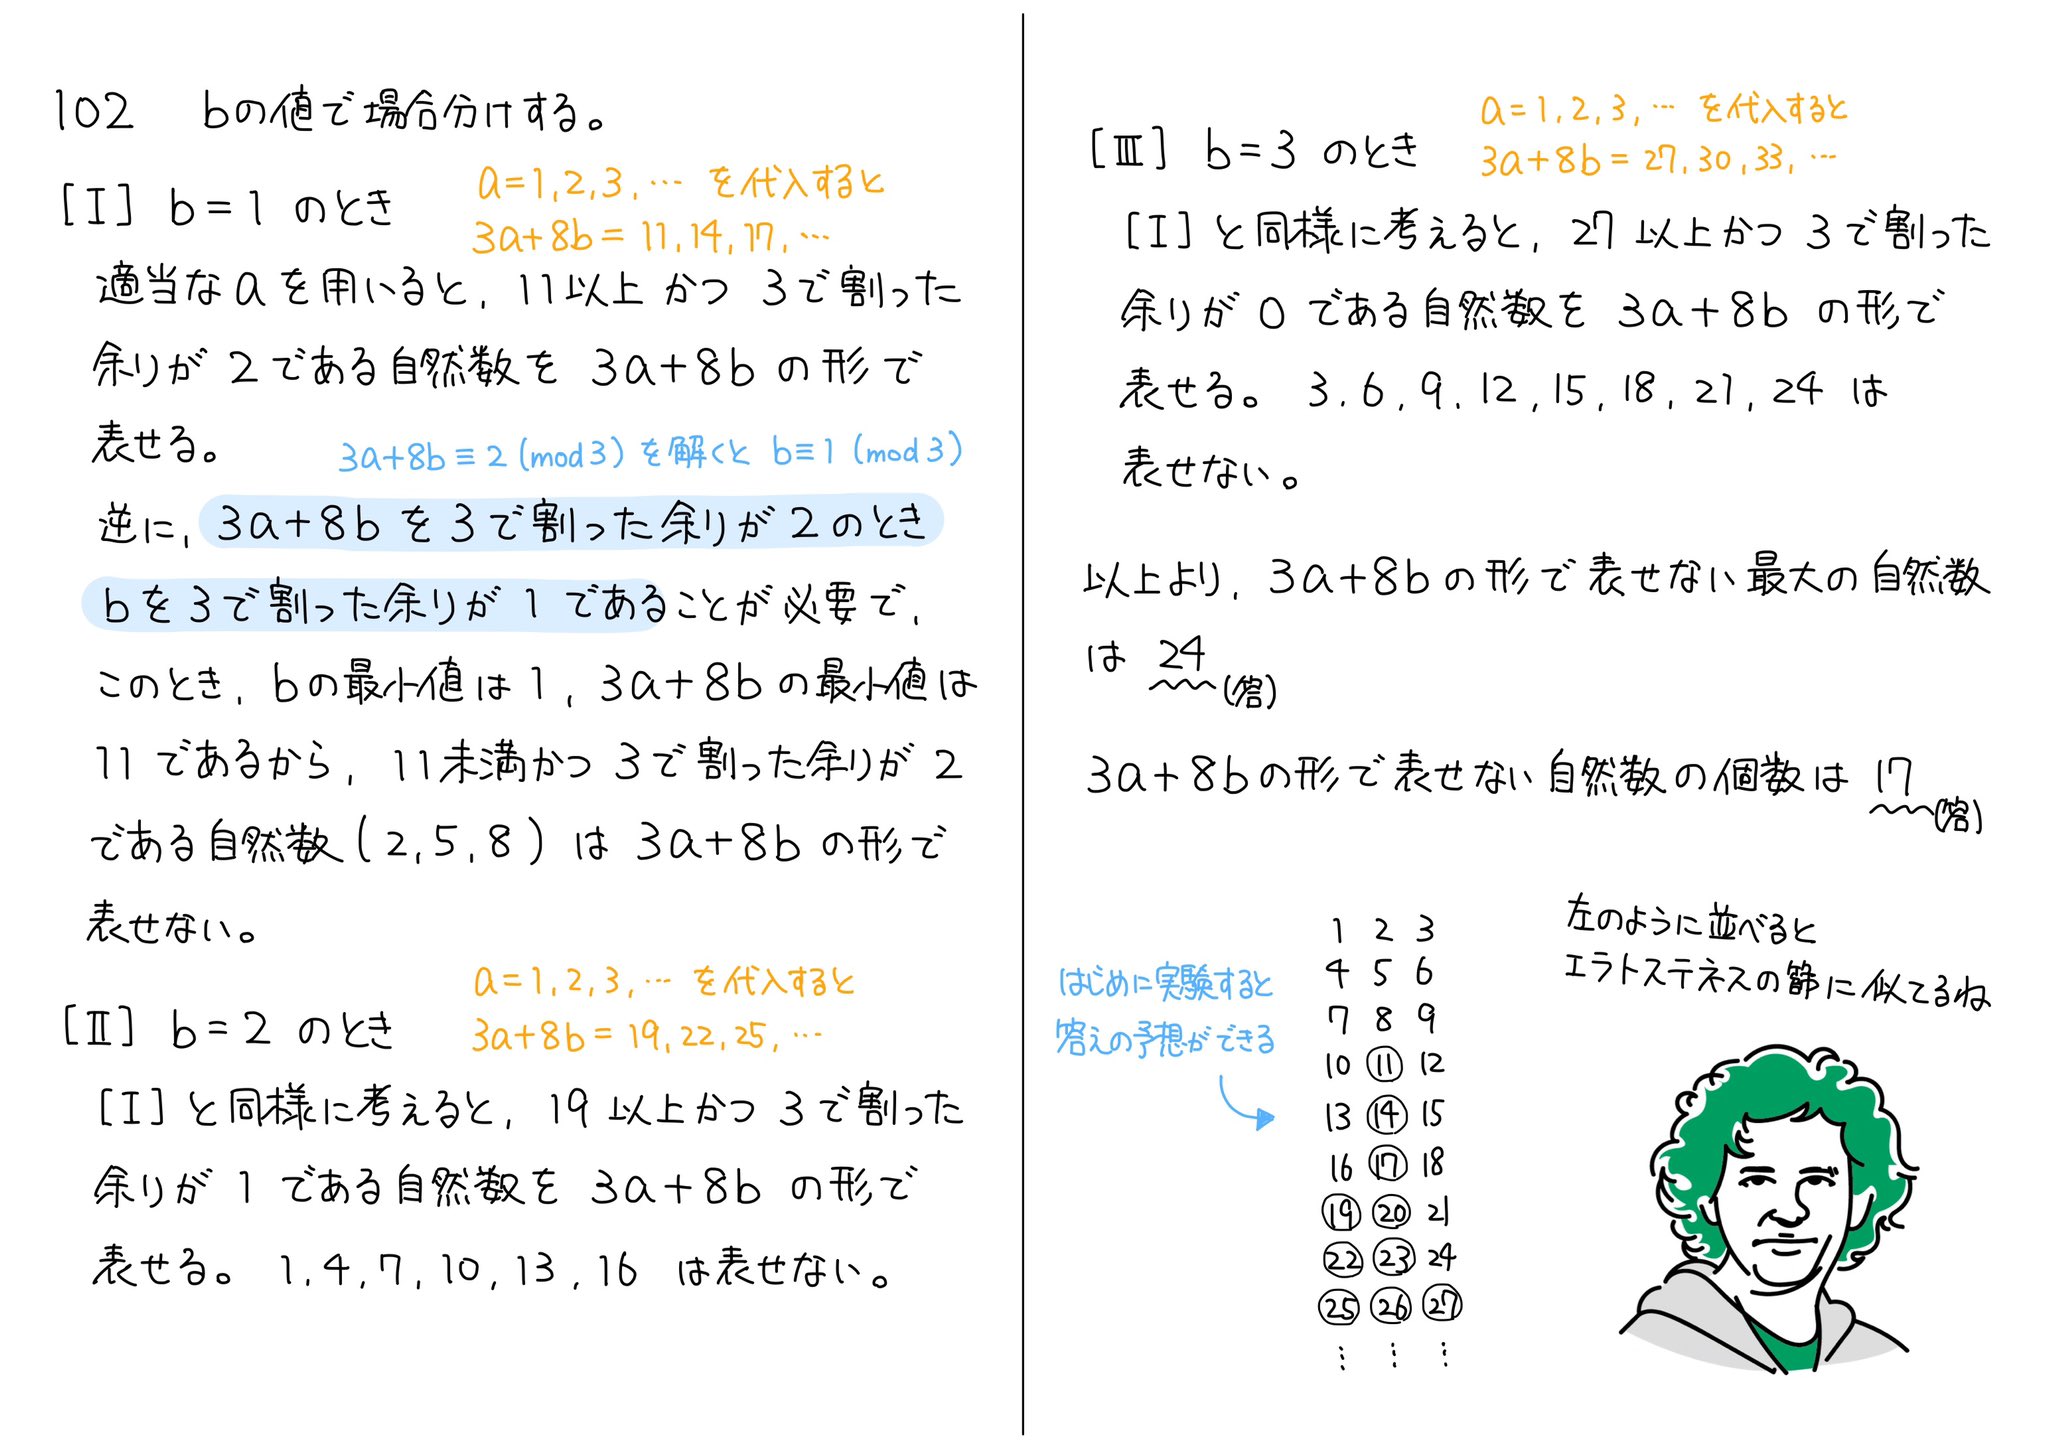 102 bの値で場合分けする。
[Ⅰ] b=1 のとき
a=1,2,3,… を代入すると
3a+8b = 11,14,17,…
適当なaを用いると, 11以上 かつ 3で割った
余りが 2である自然数を 3a+8b の形で
表せる。
3a+8b≡2 (mod3) を解くと b≡1 (mod3)
逆に, 3a+8b を3で割った余りが2のとき
bを3で割った余りが1であることが必要で,
このとき, bの最小値は1, 3a+8bの最小値は
11であるから, 11未満かつ 3で割った余りが2
である自然数(2,5,8) は 3a+8bの形で
表せない。
[Ⅱ] b=2 のとき
a=1,2,3,… を代入すると
3a+8b = 19,22,25,…
[Ⅰ]と同様に考えると, 19以上かつ 3で割った
余りが 1である自然数を 3a+8b の形で
表せる。 1,4,7,10,13,16 は表せない。
[Ⅲ] b=3 のとき
a=1,2,3,… を代入すると
3a+8b = 27,30,33,…
[Ⅰ]と同様に考えると, 27以上かつ 3で割った
余りが 0である自然数を 3a+8b の形で
表せる。 3.6,9.12,15,18,21,24 は
表せない。
以上より, 3a+8bの形で表せない最大の自然数
は 24 (答)
3a+8bの形で表せない自然数の個数は 17 (答)
はじめに実験すると
答えの予想ができる
1 2 3
4 5 6
7 8 9
10 ⑪ 12
13 ⑭ 15
16 ⑰ 18
⑲ ⑳ 21
㉒ ㉓ 24
㉕ ㉖ ㉗
⋮ ⋮ ⋮
左のように並べると
エラトステネスの篩に似てるね